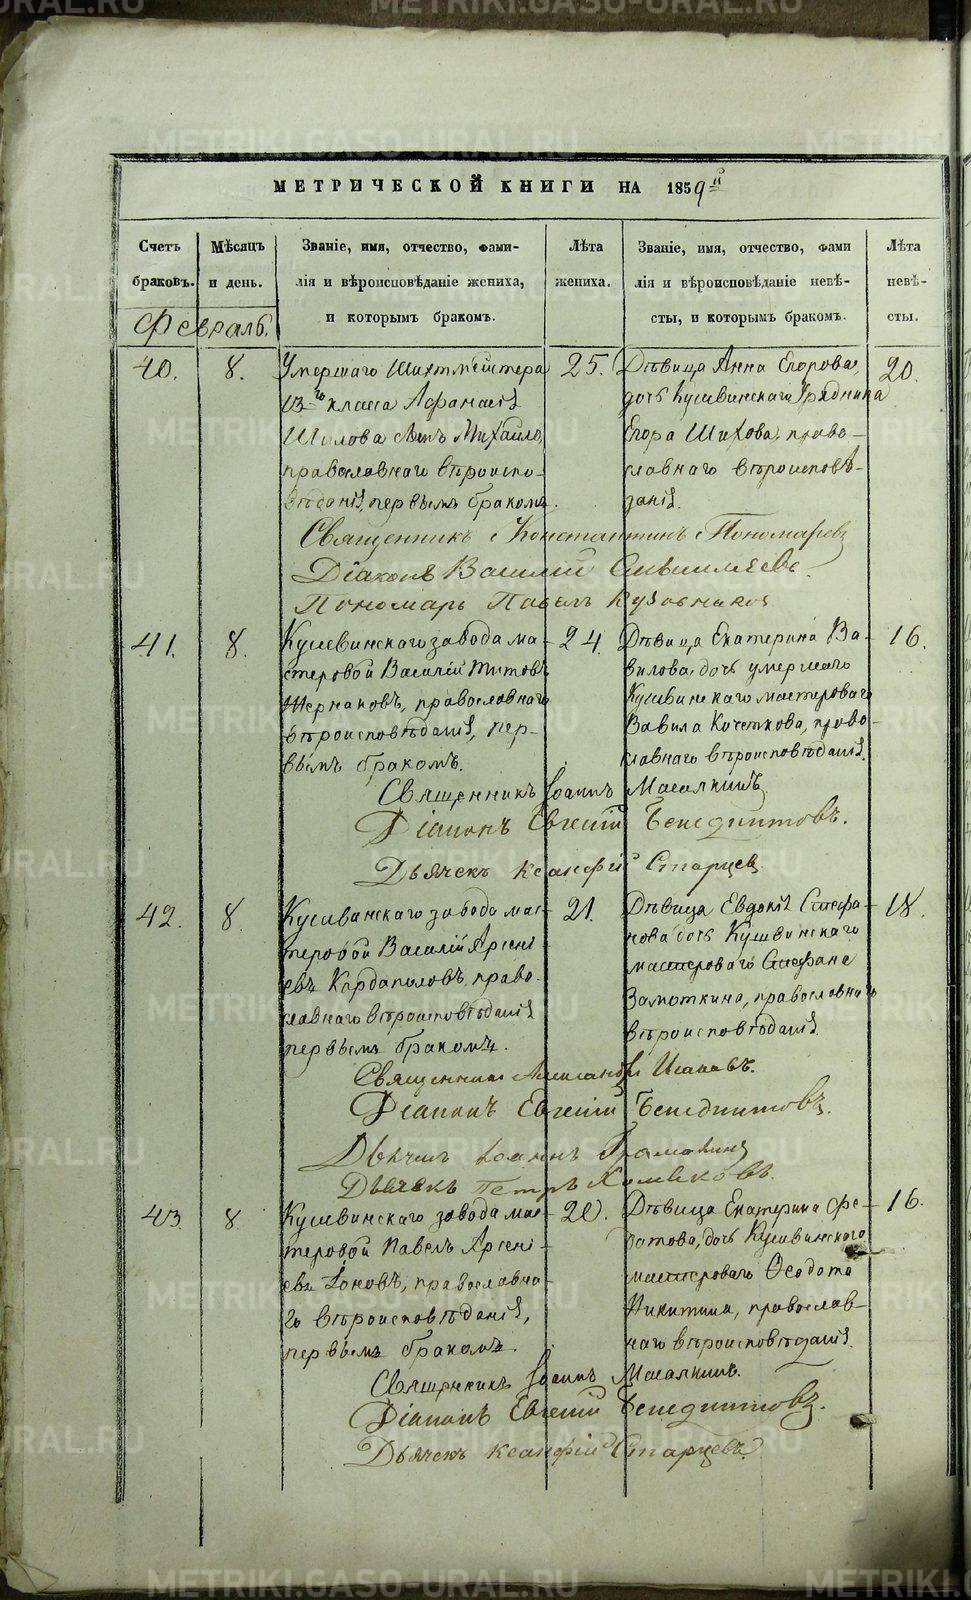 МЕТРИЧЕСКОЙ КНИГИ НА 1859й
Счетъ браковъ.
Мѣсяцъ и день.
Званіе, имя, отчество, фами-
лія и вѣроисповѣданіе жениха,
и которымъ бракомъ.
Лѣта жениха.
Званіе, имя, отчество, фами
лія и вѣроисповѣданіе невѣ-
сты, и которымъ бракомъ.
Лѣта невѣ-
сты.
Февраль.
40.
8.
Умершаго Шихтмейстера
13го класса Афанасія
Шилова сынъ Михаилъ,
православнаго вѣроиспо-
вѣданія, первымъ бракомъ.
25.
Дѣвица Анна Егорова,
дочь Кушвинскаго Урядника
Егора Шихова, право-
славнаго вѣроисповѣ-
данія.
20.
Священникъ Константинъ Пономаревъ
Діаконъ Василій
Пономарь Павелъ
41.
8.
Кушвинскаго завода ма-
стеровой Василій Титовъ
Жернаковъ, православнаго
вѣроисповѣданія, пер-
вымъ бракомъ.
24.
Дѣвица Екатерина Ва-
вилова, дочь умершаго
Кушвинскаго мастероваго
Вавила Кочеткова, право-
славнаго вѣроисповѣданія.
16.
Священникъ Іоаннъ
Діаконъ Евгеній Бенедиктовъ.
Дьячекъ Ксанфій Старцев
42.
8.
Кушвинскаго завода мас-
теровой Василій Арсені-
евъ Кардаполовъ, право-
славнаго вѣроисповѣданія
первымъ бракомъ.
21.
Дѣвица Евдокія Стефа-
нова дочь Кушвинскаго
мастероваго Стефана
Замоткина, православнаго
вѣроисповѣданія.
18.
Священникъ Александръ
Діаконъ Евгеній Бенедиктовъ.
Дьячекъ Іоаннъ
Дьячекъ Петръ Хомяковъ.
43.
8.
Кушвинскаго завода мас-
теровой Павелъ Арсені-
евъ Іоновъ, православна-
го вѣроисповѣданія,
первымъ бракомъ.
20.
Дѣвица Екатерина Фе-
дотова, дочь Кушвинскаго
мастероваго Ѳеодота
Никитина, православ-
наго вѣроисповѣданія.
16.
Священникъ Іоаннъ
Діаконъ Евгеній Бенедиктовъ.
Дьячекъ Ксанфій Старцевъ.
METRIKI.GASO-URAL.RU